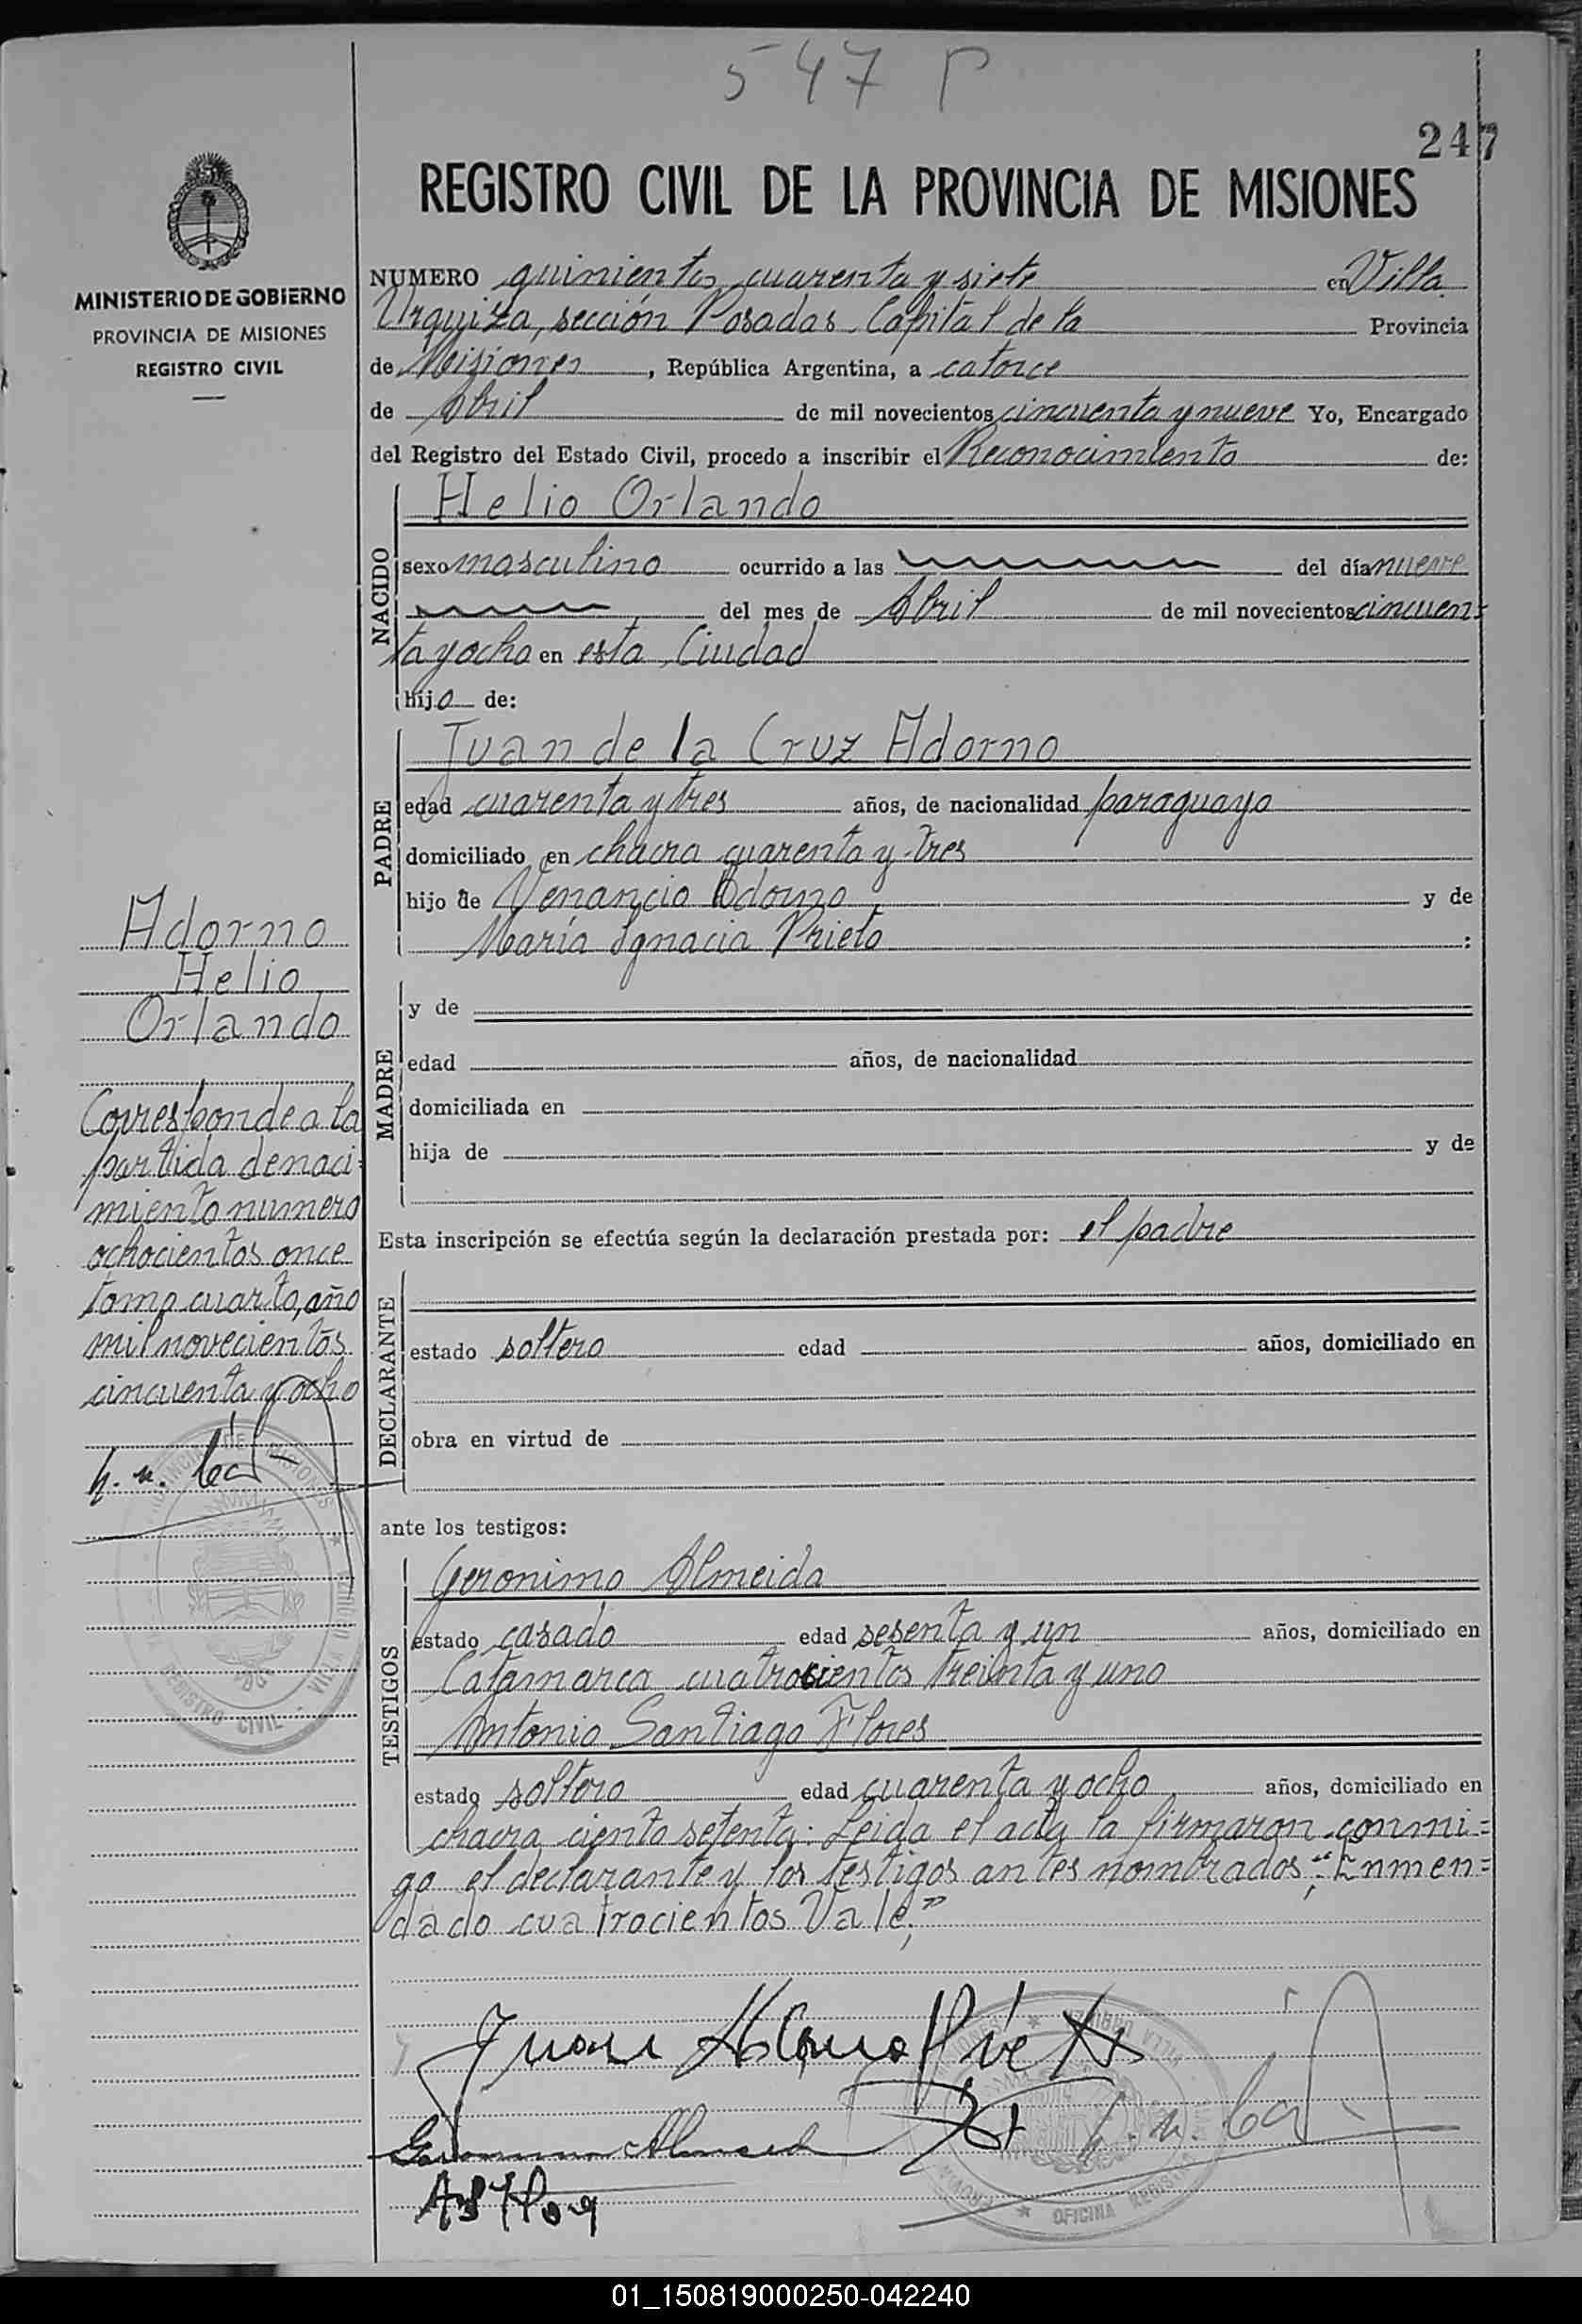 547 P
247
REGISTRO CIVIL DE LA PROVINCIA DE MISIONES
MINISTERIO DE GOBIERNO
PROVINCIA DE MISIONES
REGISTRO CIVIL
NUMERO quinientos cuarenta y siete en Villa
Urquiza, sección Posadas Capital de la Provincia
de Misiones, República Argentina, a catorce
de Abril de mil novecientos cincuenta y nueve Yo, Encargado
del Registro del Estado Civil, procedo a inscribir el Reconocimiento de:
NACIDO
Helio Orlando
sexo masculino ocurrido a las del día nueve
del mes de Abril de mil novecientos cincuen-
ta y ocho en esta Ciudad
hijo de:
PADRE
Juan de la Cruz Adorno
edad cuarenta y tres años, de nacionalidad paraguayo
domiciliado en chacra cuarenta y tres
hijo de Venancio Adorno y de
María Ignacia Prieto :
MADRE
y de
edad años, de nacionalidad
domiciliada en
hija de y de
Esta inscripción se efectúa según la declaración prestada por: el padre
DECLARANTE
estado soltero edad años, domiciliado en
obra en virtud de
ante los testigos:
TESTIGOS
Geronimo Almeida
estado casado edad sesenta y un años, domiciliado en
Catamarca cuatrocientos treinta y uno
Antonio Santiago Flores
estado soltero edad cuarenta y ocho años, domiciliado en
chacra ciento setenta: Leida el acta la firmaron conmi=
go el declarante y los testigos antes nombrados; "Enmen=
dado cuatrocientos Vale;"
Adorno
Helio
Orlando
Corresponde a la
partida de naci-
miento numero
ochocientos once
tomo cuarto, año
mil novecientos
cincuenta y ocho
REGISTRO CIVIL
OFICINA
01_150819000250-042240